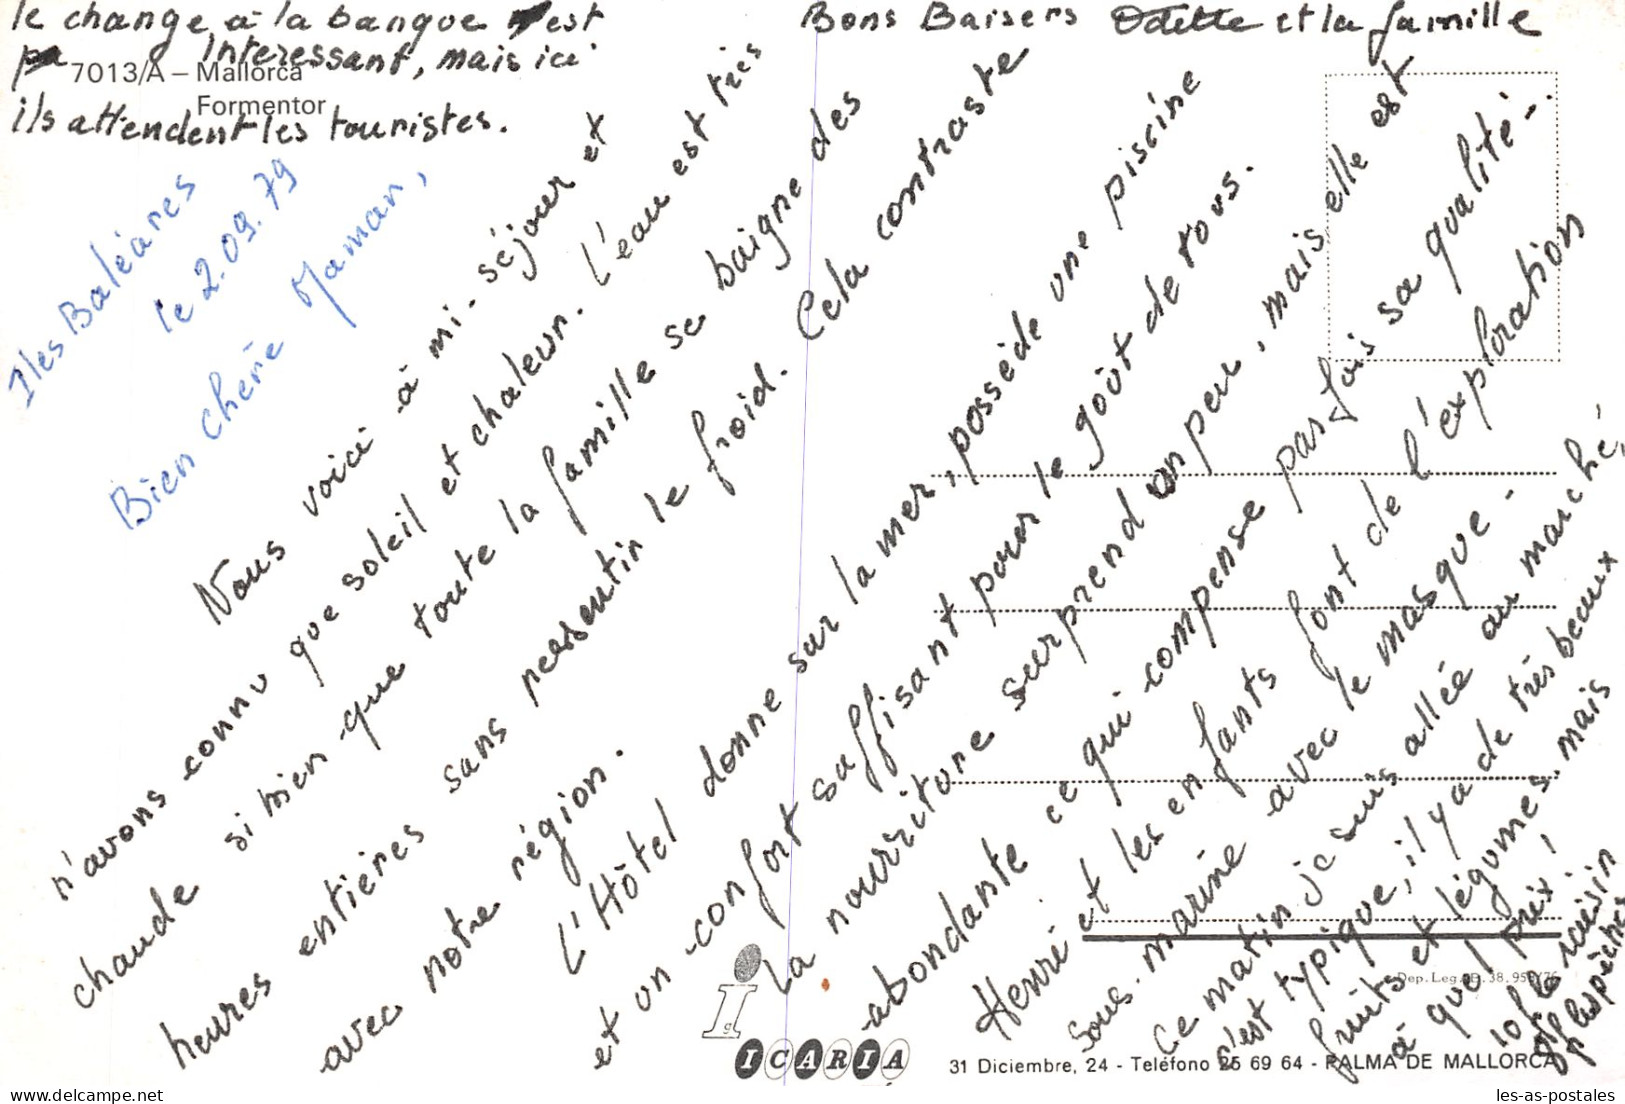 Iles Baléares
le 2.09.79
Bien chère Maman,
Nous voici à mi-séjour et
n'avons connu que soleil et chaleur. L'eau est très
chaude si bien que toute la famille se baigne des
heures entières sans ressentir le froid. Cela contraste
avec notre région.
L'Hôtel donne sur la mer, possède une piscine
et un confort suffisant pour le goût de tous.
La nourriture surprend un peu, mais elle est
abondante ce qui compense parfois sa qualité-.
Henri et les enfants font de l'exploration
sous-marine avec le masque-
Ce matin je suis allée au marché,
c'est typique, il y a de très beaux
fruits et légumes. mais
à quel prix!
10f le raisin
les pêches
le change à la banque est
pas interessant, mais ici
ils attendent les touristes.
Bons Baisers Odette et la famille
7013/A – Mallorca
Formentor
Dep. Leg. B. 38.959/76
ICARIA
31 Diciembre, 24 - Teléfono 25 69 64 - PALMA DE MALLORCA
les-as-postales